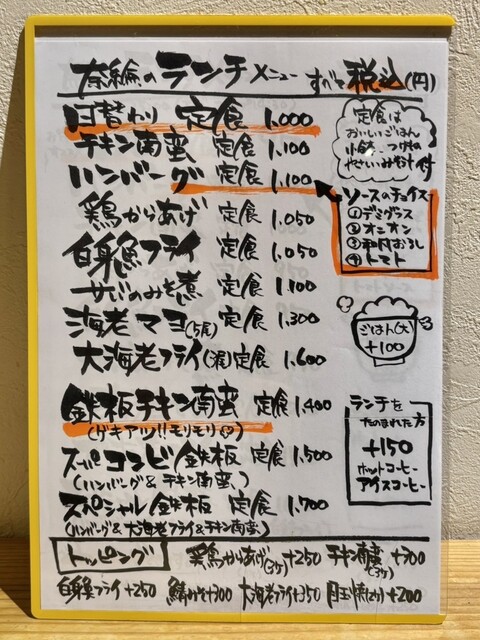 奈綸のランチメニュー すべて税込(円)
日替わり 定食 1,000
チキン南蛮 定食 1,100
ハンバーグ 定食 1,100
鶏からあげ 定食 1,050
白身魚フライ 定食 1,050
サバのみそ煮 1,100
海老マヨ(5尾)定食 1,300
大海老フライ 定食 1,600
鉄板チキン南蛮 定食 1,400
(ゲキアツ!!モリモリ♡)
スーパーコンビ鉄板 定食 1,500
(ハンバーグ&チキン南蛮)
スペシャル鉄板 定食 1,700
(ハンバーグ&大海老フライ&チキン南蛮)
定食は
おいしいごはん
小鉢、つけもの
やさいみそ汁付
ソースのチョイス
①デミグラス
②オニオン
③和風おろし
④トマト
ごはん(大)
+100
ランチを
たのまれた方
+150
ホットコーヒー
アイスコーヒー
トッピング
鶏からあげ(3ケ)+250 チキン南蛮(3ケ)+300
白身フライ+250 鯖みそ+300 大海老フライ+350 目玉焼(2ケ)+200